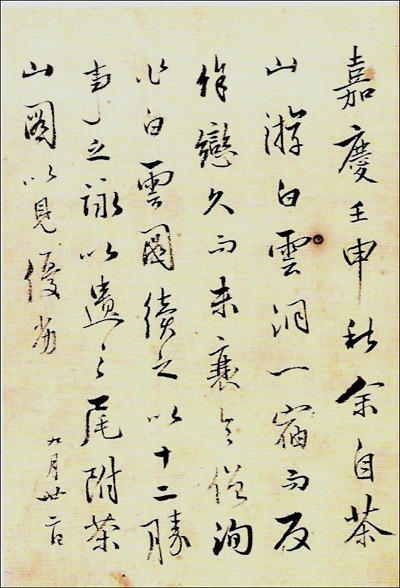 嘉慶壬申秋余自茶
山游白雲洞一宿而反
餘戀久而未衰令僧洵
作白雲圖續之以十二勝
事之詠以遺之尾附茶
山圖以見優劣
九月廿二日